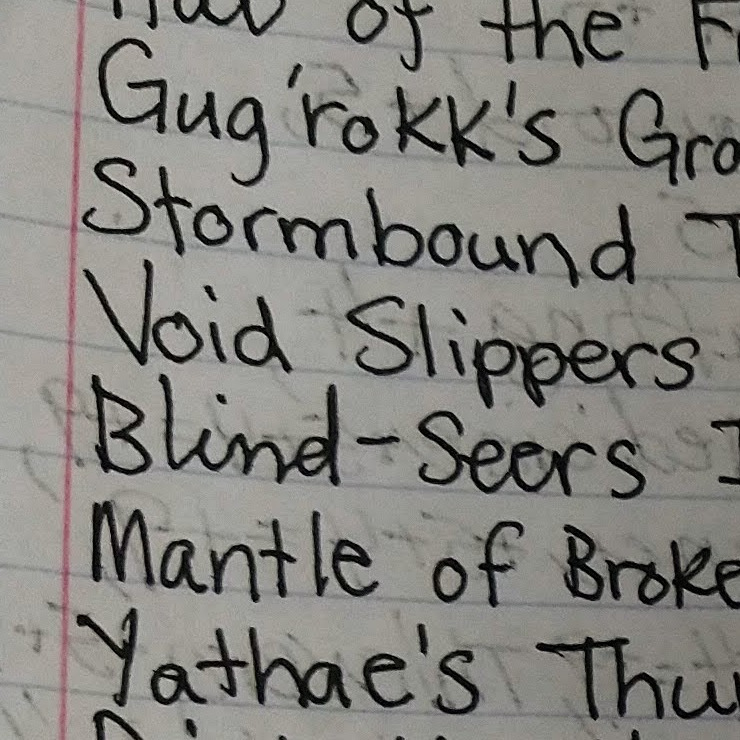 of the
Gug'rokk's Gro
Stormbound T
Void Slippers
Blind-Seers I
Mantle of Broke
Yathae's Thu